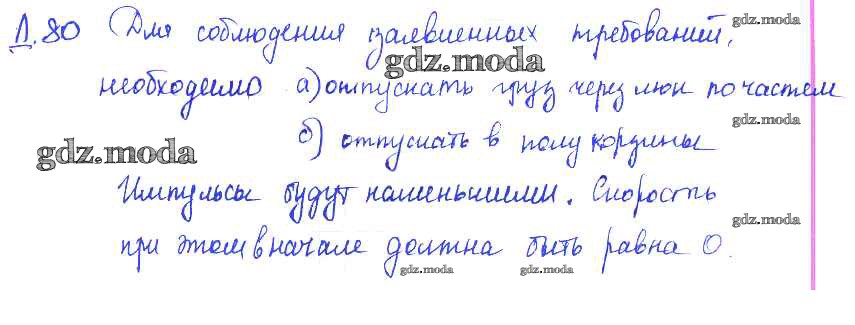 Д.80 Для соблюдения заявленных требований,
необходимо а) отпускать груз через люк по частям
б) отпускать в полу корзины
Импульсы будут наменьшими. Скорость
при этом в начале должна быть равна 0.
gdz.moda
gdz.moda
gdz.moda
gdz.moda
gdz.moda
gdz.moda
gdz.moda